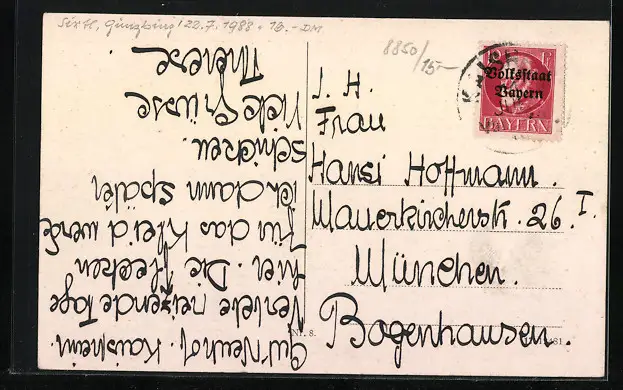 Sixtl, Günzburg 22.7.1988 · 10.-DM
8850/15-
Gut Neuhof. Kaisheim.
Verlebe reizende Tage
hier. Die Flecken
für das Kleid werde
ich dann später
schicken.
Viele Grüsse
Therese
Volksstaat
Bayern
BAYERN
I. H.
Frau
Hansi Hoffmann.
Mauerkircherstr. 26 I.
München.
Bogenhausen.
Nr. 8.